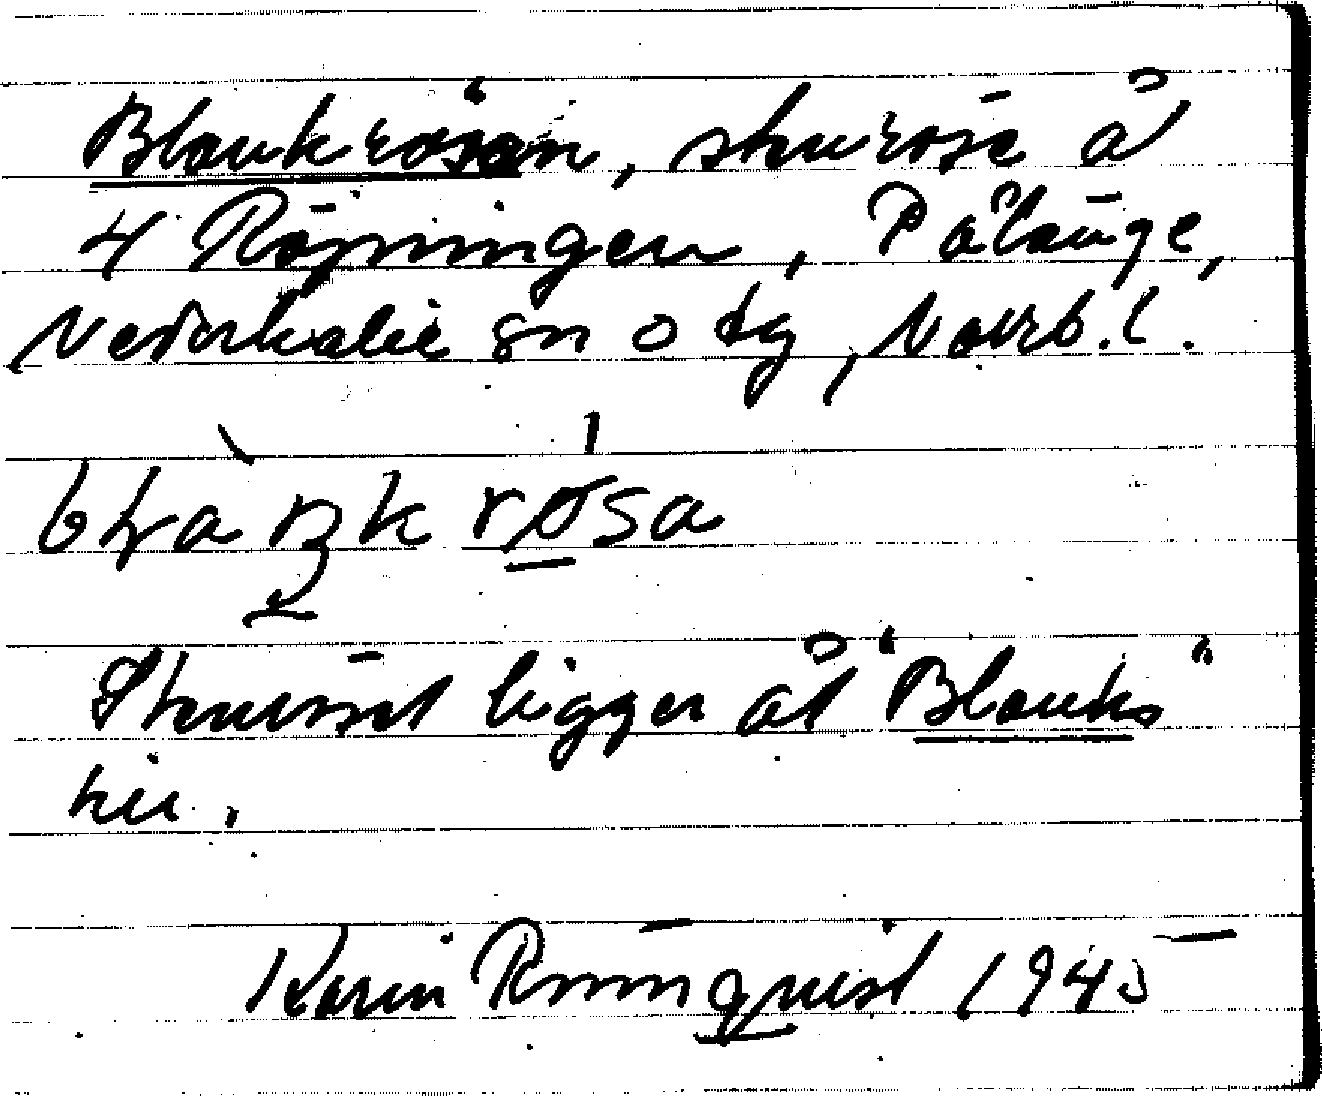 Blankrösan, stenröse å
4 Röjningen, Pålänge,
Nederkalix sn o tg, Norrb.l.
Stenröset ligger åt "Blanks"
hit.
Karin Rönnquist 1945